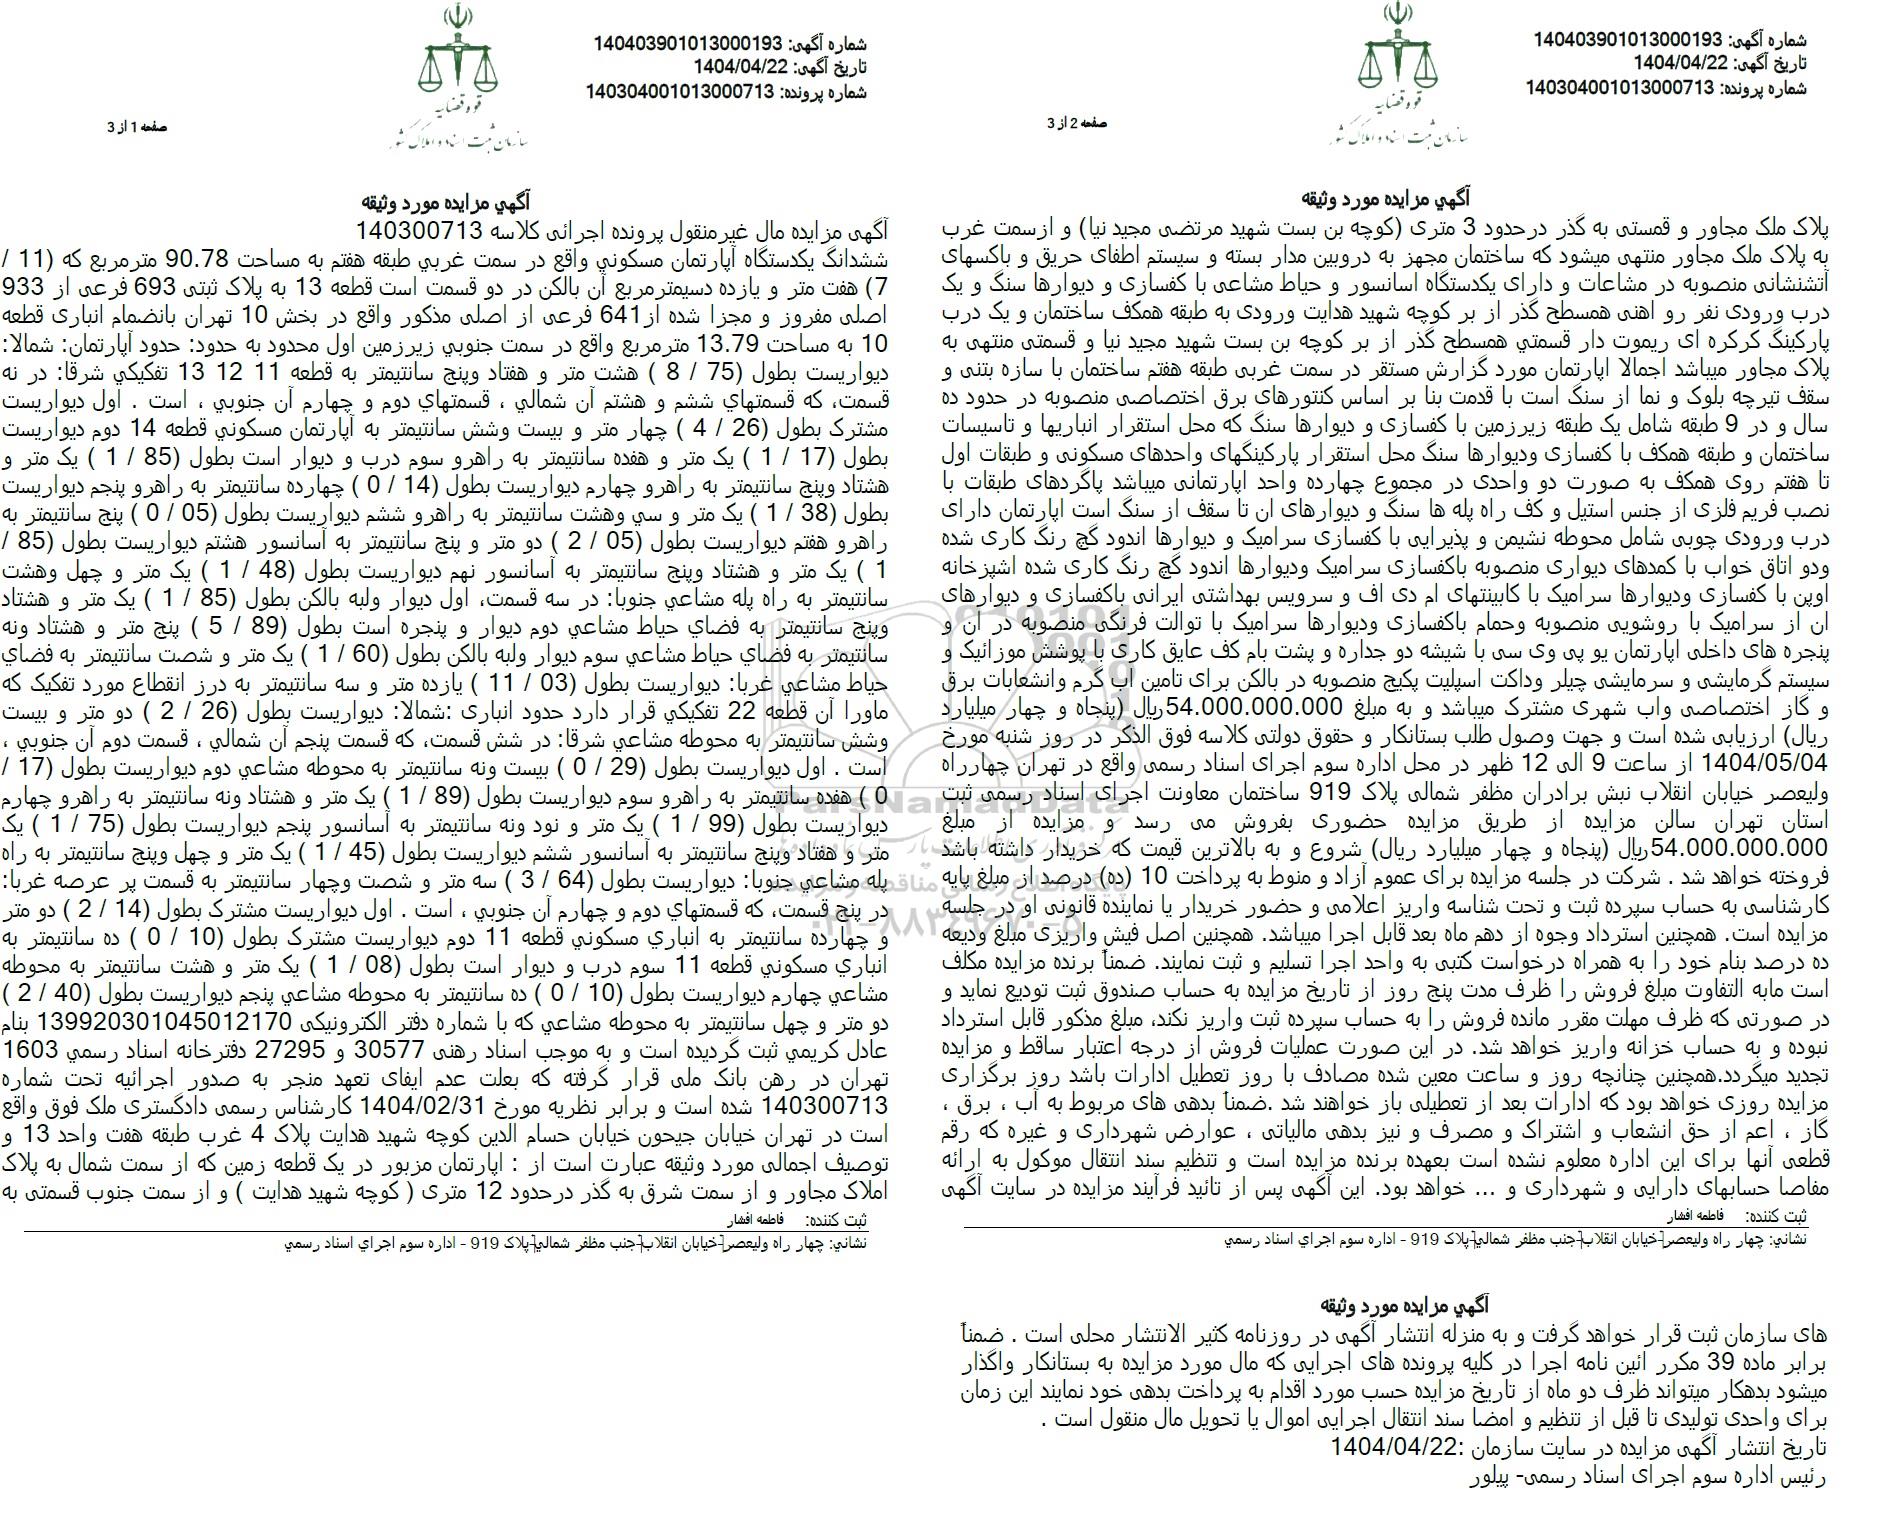 شماره آگهی: 140403901013000193
تاریخ آگهی: 1404/04/22
شماره پرونده: 140304001013000713
قوه قضاییه
سازمان ثبت اسناد و املاک کشور
صفحه 1 از 3
آگهي مزایده مورد وثیقه
آگهی مزایده مال غیرمنقول پرونده اجرائی کلاسه 140300713
ششدانگ یکدستگاه آپارتمان مسکوني واقع در سمت غربي طبقه هفتم به مساحت 90.78 مترمربع که (11 /
7) هفت متر و یازده دسیمترمربع آن بالکن در دو قسمت است قطعه 13 به پلاک ثبتی 693 فرعی از 933
اصلی مفروز و مجزا شده از641 فرعی از اصلی مذکور واقع در بخش 10 تهران بانضمام انباری قطعه
10 به مساحت 13.79 مترمربع واقع در سمت جنوبي زیرزمین اول محدود به حدود: حدود آپارتمان: شمالا:
دیواریست بطول (75 / 8 ) هشت متر و هفتاد وپنج سانتیمتر به قطعه 11 12 13 تفکیکي شرقا: در نه
قسمت، که قسمتهاي ششم و هشتم آن شمالي ، قسمتهاي دوم و چهارم آن جنوبي ، است . اول دیواریست
مشترک بطول (26 / 4 ) چهار متر و بیست وشش سانتیمتر به آپارتمان مسکوني قطعه 14 دوم دیواریست
بطول (17 / 1 ) یک متر و هفده سانتیمتر به راهرو سوم درب و دیوار است بطول (85 / 1 ) یک متر و
هشتاد وپنج سانتیمتر به راهرو چهارم دیواریست بطول (14 / 0 ) چهارده سانتیمتر به راهرو پنجم دیواریست
بطول (38 / 1 ) یک متر و سي وهشت سانتیمتر به راهرو ششم دیواریست بطول (05 / 0 ) پنج سانتیمتر به
راهرو هفتم دیواریست بطول (05 / 2 ) دو متر و پنج سانتیمتر به آسانسور هشتم دیواریست بطول (85 /
1 ) یک متر و هشتاد وپنج سانتیمتر به آسانسور نهم دیواریست بطول (48 / 1 ) یک متر و چهل وهشت
سانتیمتر به راه پله مشاعي جنوبا: در سه قسمت، اول دیوار ولبه بالکن بطول (85 / 1 ) یک متر و هشتاد
وپنج سانتیمتر به فضاي حیاط مشاعي دوم دیوار و پنجره است بطول (89 / 5 ) پنج متر و هشتاد ونه
سانتیمتر به فضاي حیاط مشاعي سوم دیوار ولبه بالکن بطول (60 / 1 ) یک متر و شصت سانتیمتر به فضاي
حیاط مشاعي غربا: دیواریست بطول (03 / 11 ) یازده متر و سه سانتیمتر به درز انقطاع مورد تفکیک که
ماورا آن قطعه 22 تفکیکي قرار دارد حدود انباری :شمالا: دیواریست بطول (26 / 2 ) دو متر و بیست
وشش سانتیمتر به محوطه مشاعي شرقا: در شش قسمت، که قسمت پنجم آن شمالي ، قسمت دوم آن جنوبي ،
است . اول دیواریست بطول (29 / 0 ) بیست ونه سانتیمتر به محوطه مشاعي دوم دیواریست بطول (17 /
0 ) هفده سانتیمتر به راهرو سوم دیواریست بطول (89 / 1 ) یک متر و هشتاد ونه سانتیمتر به راهرو چهارم
دیواریست بطول (99 / 1 ) یک متر و نود ونه سانتیمتر به آسانسور پنجم دیواریست بطول (75 / 1 ) یک
متر و هفتاد وپنج سانتیمتر به آسانسور ششم دیواریست بطول (45 / 1 ) یک متر و چهل وپنج سانتیمتر به راه
پله مشاعي جنوبا: دیواریست بطول (64 / 3 ) سه متر و شصت وچهار سانتیمتر به قسمت پر عرصه غربا:
در پنج قسمت، که قسمتهاي دوم و چهارم آن جنوبي ، است . اول دیواریست مشترک بطول (14 / 2 ) دو متر
و چهارده سانتیمتر به انباري مسکوني قطعه 11 دوم دیواریست مشترک بطول (10 / 0 ) ده سانتیمتر به
انباري مسکوني قطعه 11 سوم درب و دیوار است بطول (08 / 1 ) یک متر و هشت سانتیمتر به محوطه
مشاعي چهارم دیواریست بطول (10 / 0 ) ده سانتیمتر به محوطه مشاعي پنجم دیواریست بطول (40 / 2 )
دو متر و چهل سانتیمتر به محوطه مشاعي که با شماره دفتر الکترونیکی 139920301045012170 بنام
عادل کریمي ثبت گردیده است و به موجب اسناد رهنی 30577 و 27295 دفترخانه اسناد رسمي 1603
تهران در رهن بانک ملی قرار گرفته که بعلت عدم ایفای تعهد منجر به صدور اجرائیه تحت شماره
140300713 شده است و برابر نظریه مورخ 1404/02/31 کارشناس رسمی دادگستری ملک فوق واقع
است در تهران خیابان جیحون خیابان حسام الدین کوچه شهید هدایت پلاک 4 غرب طبقه هفت واحد 13 و
توصیف اجمالی مورد وثیقه عبارت است از : اپارتمان مزبور در یک قطعه زمین که از سمت شمال به پلاک
املاک مجاور و از سمت شرق به گذر درحدود 12 متری ( کوچه شهید هدایت ) و از سمت جنوب قسمتی به
ثبت کننده: فاطمه افشار
نشاني: چهار راه ولیعصر-خیابان انقلاب-جنب مظفر شمالي-پلاک 919 - اداره سوم اجراي اسناد رسمي
شماره آگهی: 140403901013000193
تاریخ آگهی: 1404/04/22
شماره پرونده: 140304001013000713
قوه قضاییه
سازمان ثبت اسناد و املاک کشور
صفحه 2 از 3
آگهي مزایده مورد وثیقه
پلاک ملک مجاور و قمستی به گذر درحدود 3 متری (کوچه بن بست شهید مرتضی مجید نیا) و ازسمت غرب
به پلاک ملک مجاور منتهی میشود که ساختمان مجهز به دروبین مدار بسته و سیستم اطفای حریق و باکسهای
آتشنشانی منصوبه در مشاعات و دارای یکدستگاه اسانسور و حیاط مشاعی با کفسازی و دیوارها سنگ و یک
درب ورودی نفر رو اهنی همسطح گذر از بر کوچه شهید هدایت ورودی به طبقه همکف ساختمان و یک درب
پارکینگ کرکره ای ریموت دار قسمتي همسطح گذر از بر کوچه بن بست شهید مجید نیا و قسمتی منتهی به
پلاک مجاور میباشد اجمالا اپارتمان مورد گزارش مستقر در سمت غربی طبقه هفتم ساختمان با سازه بتنی و
سقف تیرچه بلوک و نما از سنگ است با قدمت بنا بر اساس کنتورهای برق اختصاصی منصوبه در حدود ده
سال و در 9 طبقه شامل یک طبقه زیرزمین با کفسازی و دیوارها سنگ که محل استقرار انباریها و تاسیسات
ساختمان و طبقه همکف با کفسازی ودیوارها سنگ محل استقرار پارکینگهای واحدهای مسکونی و طبقات اول
تا هفتم روی همکف به صورت دو واحدی در مجموع چهارده واحد اپارتمانی میباشد پاگردهای طبقات با
نصب فریم فلزی از جنس استیل و کف راه پله ها سنگ و دیوارهای ان تا سقف از سنگ است اپارتمان دارای
درب ورودی چوبی شامل محوطه نشیمن و پذیرایی با کفسازی سرامیک و دیوارها اندود گچ رنگ کاری شده
ودو اتاق خواب با کمدهای دیواری منصوبه باکفسازی سرامیک ودیوارها اندود گچ رنگ کاری شده اشپزخانه
اوپن با کفسازی ودیوارها سرامیک با کابینتهای ام دی اف و سرویس بهداشتی ایرانی باکفسازی و دیوارهای
ان از سرامیک با روشویی منصوبه وحمام باکفسازی ودیوارها سرامیک با توالت فرنگی منصوبه در ان و
پنجره های داخلی اپارتمان یو پی وی سی با شیشه دو جداره و پشت بام کف عایق کاری با پوشش موزائیک و
سیستم گرمایشی و سرمایشی چیلر وداکت اسپلیت پکیج منصوبه در بالکن برای تامین اب گرم وانشعابات برق
و گاز اختصاصی واب شهری مشترک میباشد و به مبلغ 54.000.000.000ریال (پنجاه و چهار میلیارد
ریال) ارزیابی شده است و جهت وصول طلب بستانکار و حقوق دولتی کلاسه فوق الذکر در روز شنبه مورخ
1404/05/04 از ساعت 9 الی 12 ظهر در محل اداره سوم اجرای اسناد رسمی واقع در تهران چهارراه
ولیعصر خیابان انقلاب نبش برادران مظفر شمالی پلاک 919 ساختمان معاونت اجرای اسناد رسمی ثبت
استان تهران سالن مزایده از طریق مزایده حضوری بفروش می رسد و مزایده از مبلغ
54.000.000.000ریال (پنجاه و چهار میلیارد ریال) شروع و به بالاترین قیمت که خریدار داشته باشد
فروخته خواهد شد . شرکت در جلسه مزایده برای عموم آزاد و منوط به پرداخت 10 (ده) درصد از مبلغ پایه
کارشناسی به حساب سپرده ثبت و تحت شناسه واریز اعلامی و حضور خریدار یا نماینده قانونی او در جلسه
مزایده است. همچنین استرداد وجوه از دهم ماه بعد قابل اجرا میباشد. همچنین اصل فیش واریزی مبلغ ودیعه
ده درصد بنام خود را به همراه درخواست کتبی به واحد اجرا تسلیم و ثبت نمایند. ضمناً برنده مزایده مکلف
است مابه التفاوت مبلغ فروش را ظرف مدت پنج روز از تاریخ مزایده به حساب صندوق ثبت تودیع نماید و
در صورتی که ظرف مهلت مقرر مانده فروش را به حساب سپرده ثبت واریز نکند، مبلغ مذکور قابل استرداد
نبوده و به حساب خزانه واریز خواهد شد. در این صورت عملیات فروش از درجه اعتبار ساقط و مزایده
تجدید میگردد.همچنین چنانچه روز و ساعت معین شده مصادف با روز تعطیل ادارات باشد روز برگزاری
مزایده روزی خواهد بود که ادارات بعد از تعطیلی باز خواهند شد .ضمناً بدهی های مربوط به آب ، برق ،
گاز ، اعم از حق انشعاب و اشتراک و مصرف و نیز بدهی مالیاتی ، عوارض شهرداری و غیره که رقم
قطعی آنها برای این اداره معلوم نشده است بعهده برنده مزایده است و تنظیم سند انتقال موکول به ارائه
مفاصا حسابهای دارایی و شهرداری و ... خواهد بود. این آگهی پس از تائید فرآیند مزایده در سایت آگهی
ثبت کننده: فاطمه افشار
نشاني: چهار راه ولیعصر-خیابان انقلاب-جنب مظفر شمالي-پلاک 919 - اداره سوم اجراي اسناد رسمي
آگهي مزایده مورد وثیقه
های سازمان ثبت قرار خواهد گرفت و به منزله انتشار آگهی در روزنامه کثیر الانتشار محلی است . ضمناً
برابر ماده 39 مکرر ائین نامه اجرا در کلیه پرونده های اجرایی که مال مورد مزایده به بستانکار واگذار
میشود بدهکار میتواند ظرف دو ماه از تاریخ مزایده حسب مورد اقدام به پرداخت بدهی خود نمایند این زمان
برای واحدی تولیدی تا قبل از تنظیم و امضا سند انتقال اجرایی اموال یا تحویل مال منقول است .
تاریخ انتشار آگهی مزایده در سایت سازمان :1404/04/22
رئیس اداره سوم اجرای اسناد رسمی- پیلور
ParsNamadData
پایگاه اطلاع رسانی مناقصه و مزایده
۰۲۱-۸۸۳۴۹۶۷۰-۵